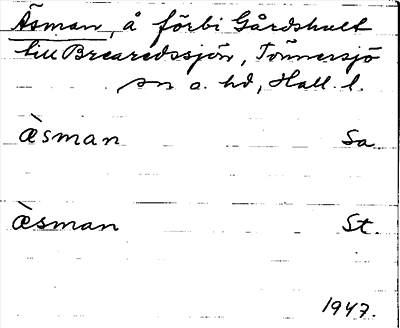 Äsman, å förbi Gårdshult
till Brearedssjön, Tönnersjö
sn o. hd, Hall. l.
æ̀sman Sa
æ̀sman St.
1947.